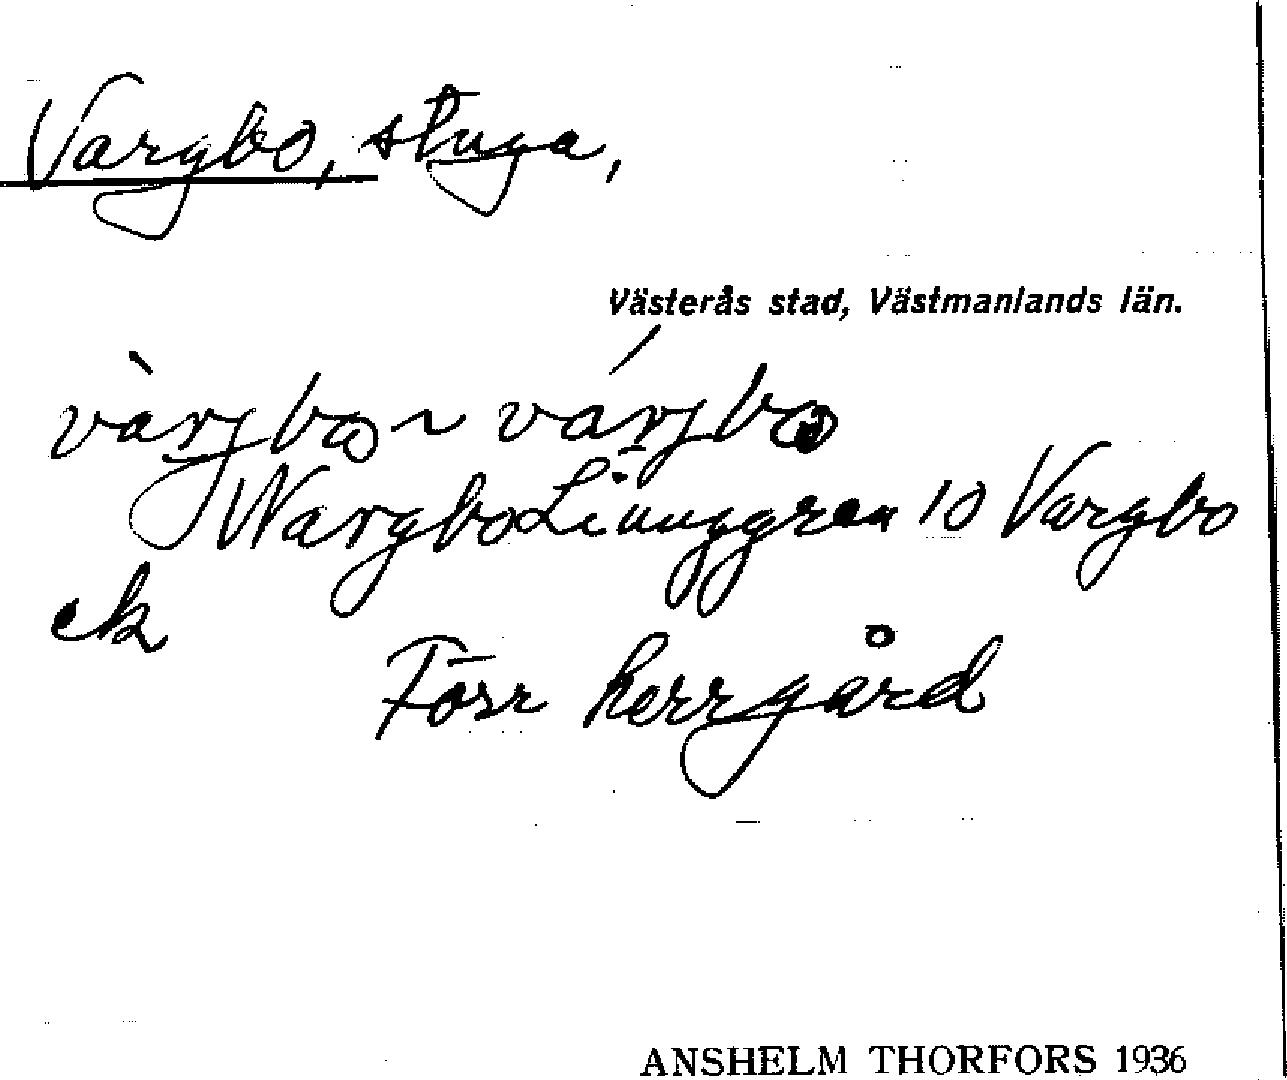 Vargbo, stuga,
Västerås stad, Västmanlands län.
vàrjbo ~ várjbo
Wargbo Liunggren 10 Vargbo
ek
Förr herrgård
ANSHELM THORFORS 1936